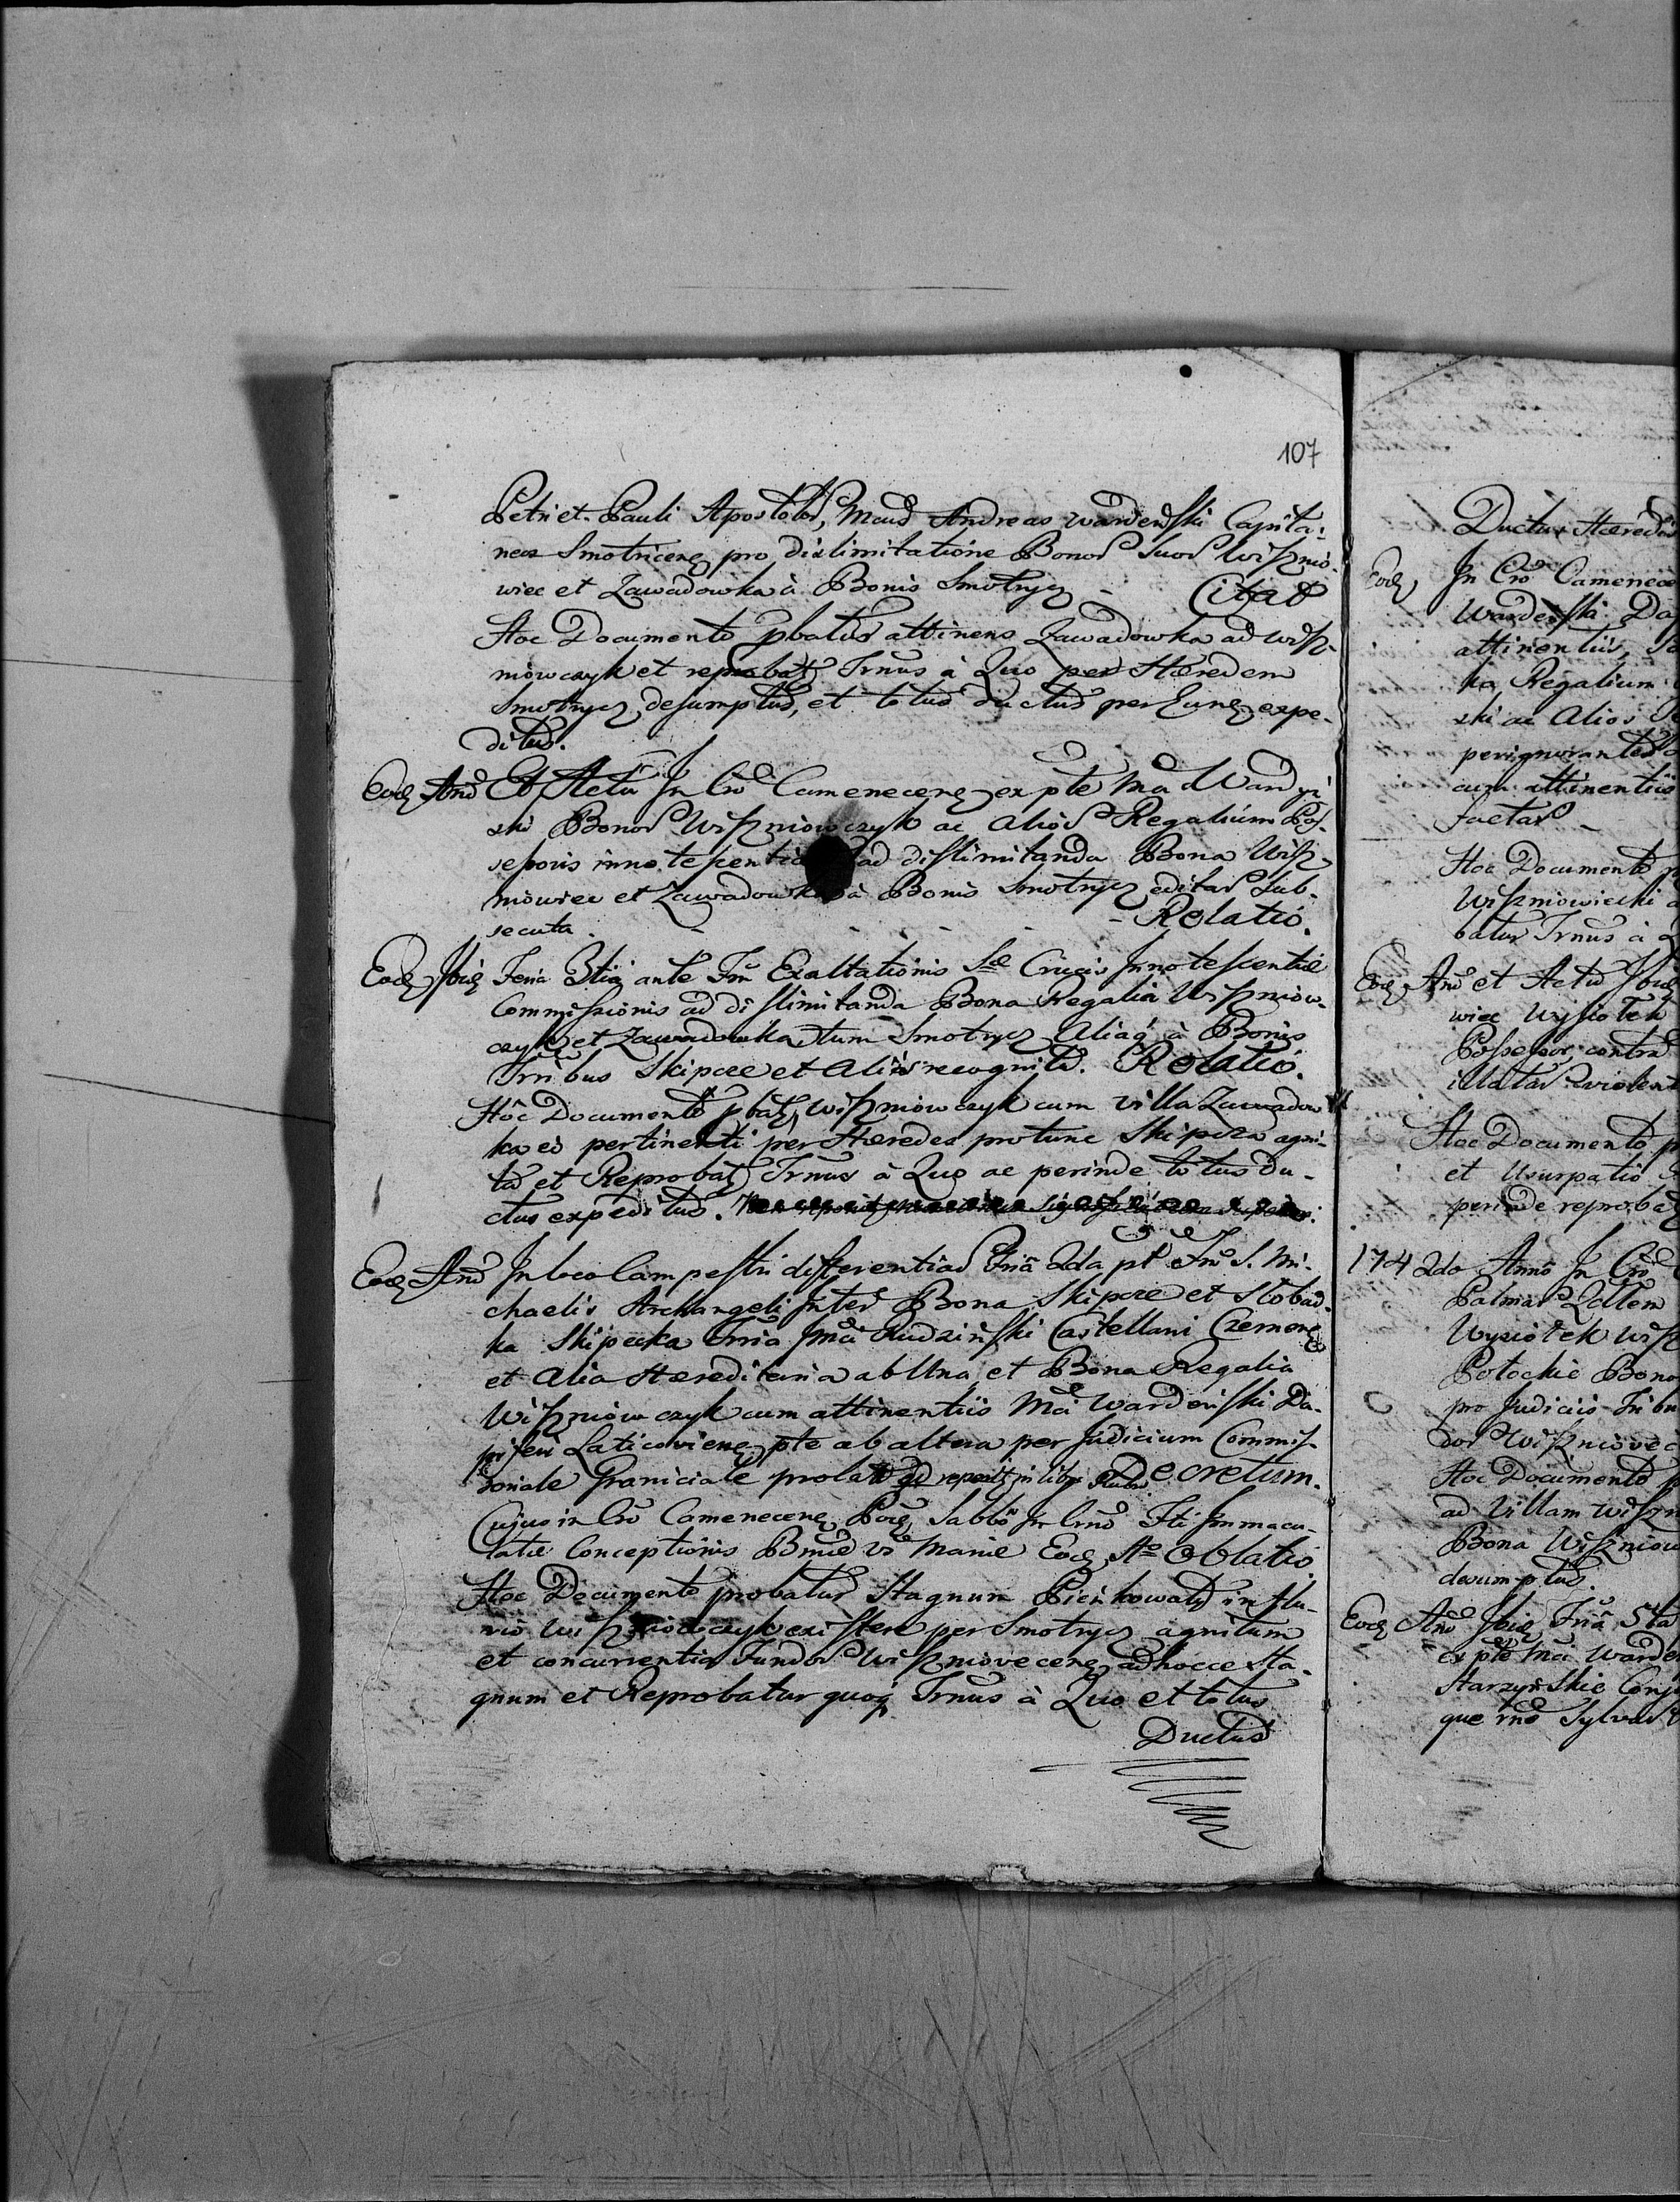 107
Petri et Pauli Apostolor, Mcus Andreas Wardenski Capita-
neus Smotricens pro dislimitatione Bonor Suor Wisznio-
wiec et Zawadowka à Bonis Smotrycz - Citat
Hoc Documento pbatur attinens Zawadowka ad Wisz-
niowczyk et reprobatz Trnus à Quo per Hæredem
Smotrycz desumptus, et totus ductus per Eunz expe-
ditus.
Eodz Ano Et Actu In Cro Camenecenz ex pte Mci Wardyń
ski Bonor Wiszniowczyk ac alior Regalium Pos-
sessoris innotescentiar ad disslimitanda Bona Wisz-
niowiec et Zawadowka à Bonis Smotrycz editar Sub-
secuta. - - - - - Relatio.
Eodz Ibidz Feria 3tia ante Fm Exaltationis Sae Crucis Innotescentiæ
Commissionis ad disslimitanda Bona Regalia Wiszniow-
czyk et Zawadowka tum Smotrycz Aliaq à Bonis
Trribus Skipcze et Aliis recognita. Relatio.
Hôc Documento pbatz Wiszniowczyk cum villa Zawadow
ka eo pertinenti per Hæredes protunc Skipcza agni-
ta et Reprobatz Trnus à Quo ac perinde totus du-
ctus expeditus.
Eodz Ano In loco Campestri differentiar Fria 2da pt Fm S. Mi-
chaelis Archangeli Inter Bona Skipcze et Slobud-
ka Skipecka Trria Jmci Rudzinski Castellani Czernenz
et Alia Hæreditaria ab Una, et Bona Regalia
Wiszniowczyk cum attinentiis Mci Wardeński Da-
piferi Laticoviens pte ab altera per Judicium Commis-
soriale Graniciale prolat qd reperitz in libr Decretum.
Cujus in Cro Camenecenz Podz Sabbo In Crno Fti Immacu-
latæ Conceptionis Bmæ Vs Mariæ Eodz Ao Oblatio
Hoc Documento probatur Stagnum Pieńkowatz in flu-
vio Wiszniowczyk existen per Smotrycz agnitum
et concurrentia Fundor Wiszniovecenz ad hocce Sta-
gnum et Reprobatur quoq Trnus à Quo et totus
Ductus
Ductus Hæredi
Eodz In Cro Camenece
Wardeski Da
attinentiis
ka Regalium
ski ac Alios
perignorantes
cum attinentiis
factar
Hoc Documento p
Wiszniowiecki a
batur Trnus à
Eodz Ano et Actu Ibidz
wiec Wysiołek
Possessor contra
illatar violent
Hoc Documento p
et Usurpatio
perinde reprobatz
1742do Anno In Cro
Palmar
Wysiołek Wisz
Potockie Bono
pro Judiciis Tribu
dor Wiszniovec
Hoc Documento p
ad Villam Wiszn
Bona Wiszniow
desumptus.
Eodz Ano Ibidz Fria 5ta
ex pte Mci Warde
Starzyńskie Conj
que rno Sylvar